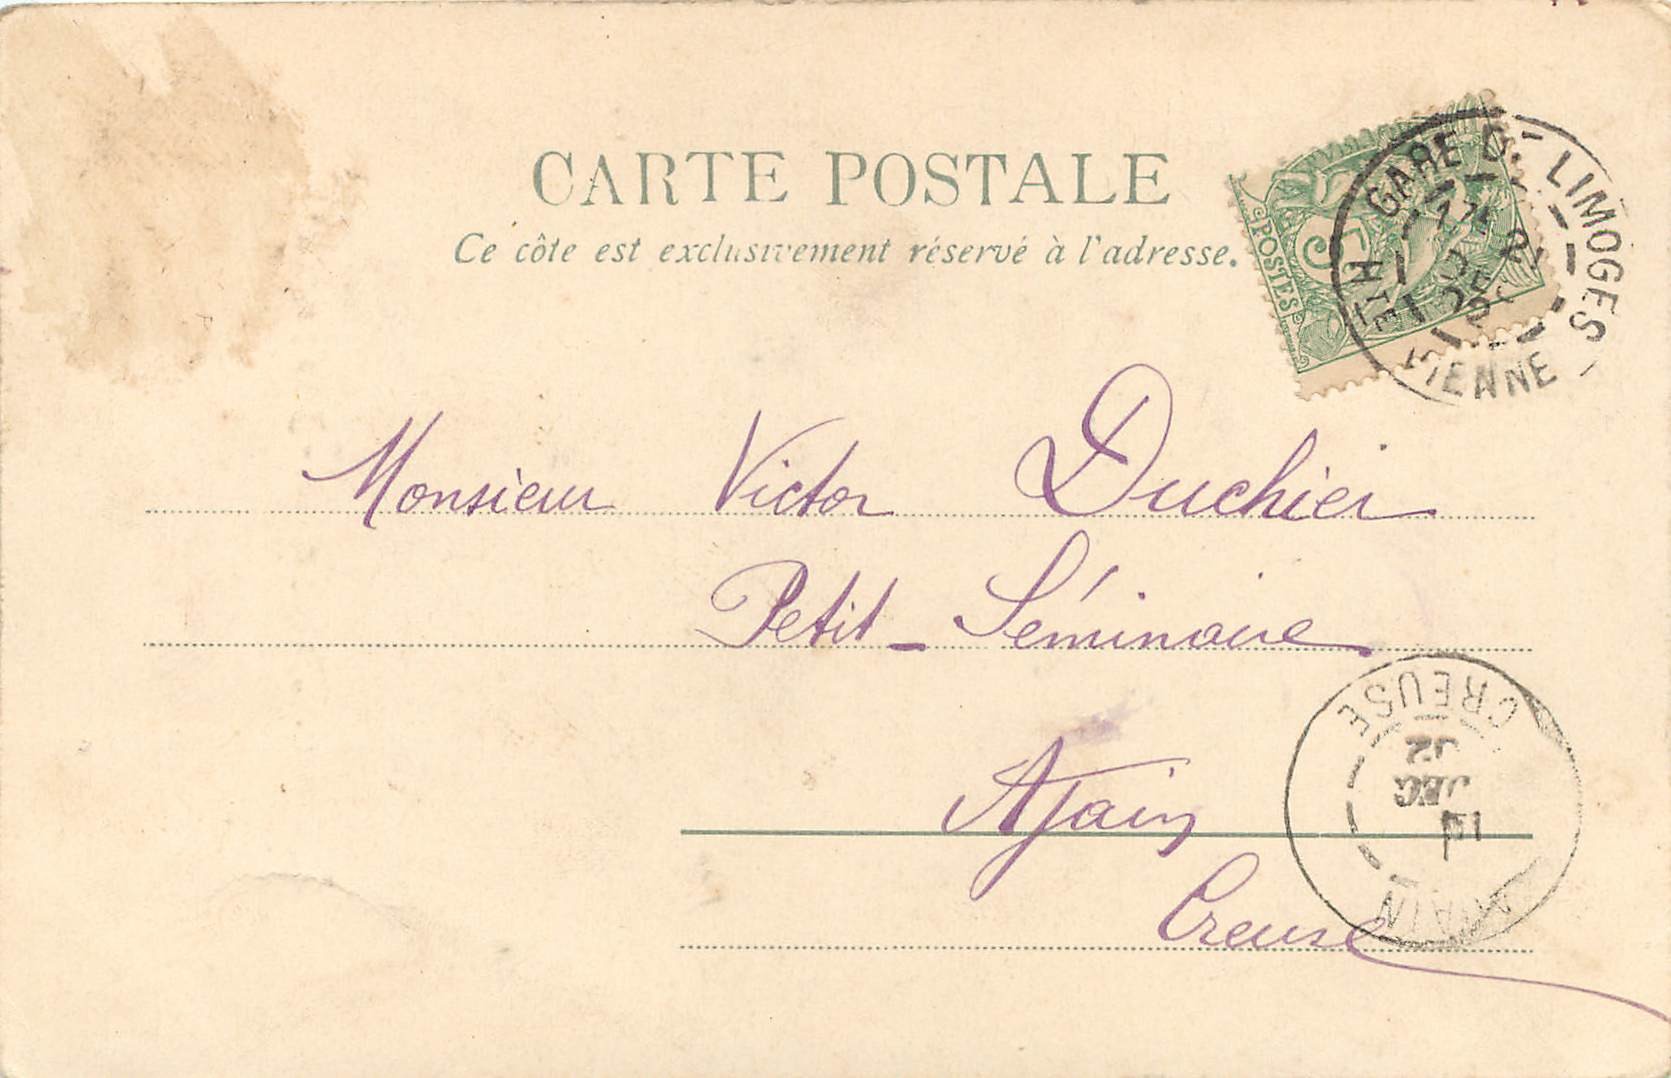 CARTE POSTALE
Ce côté est exclusivement réservé à l'adresse.
POSTES
5
GARE DE LIMOGES
HTE VIENNE
Monsieur Victor Duchier
Petit-Séminaire
Ajain
Creuse
CREUSE
02
DEC
AJAIN